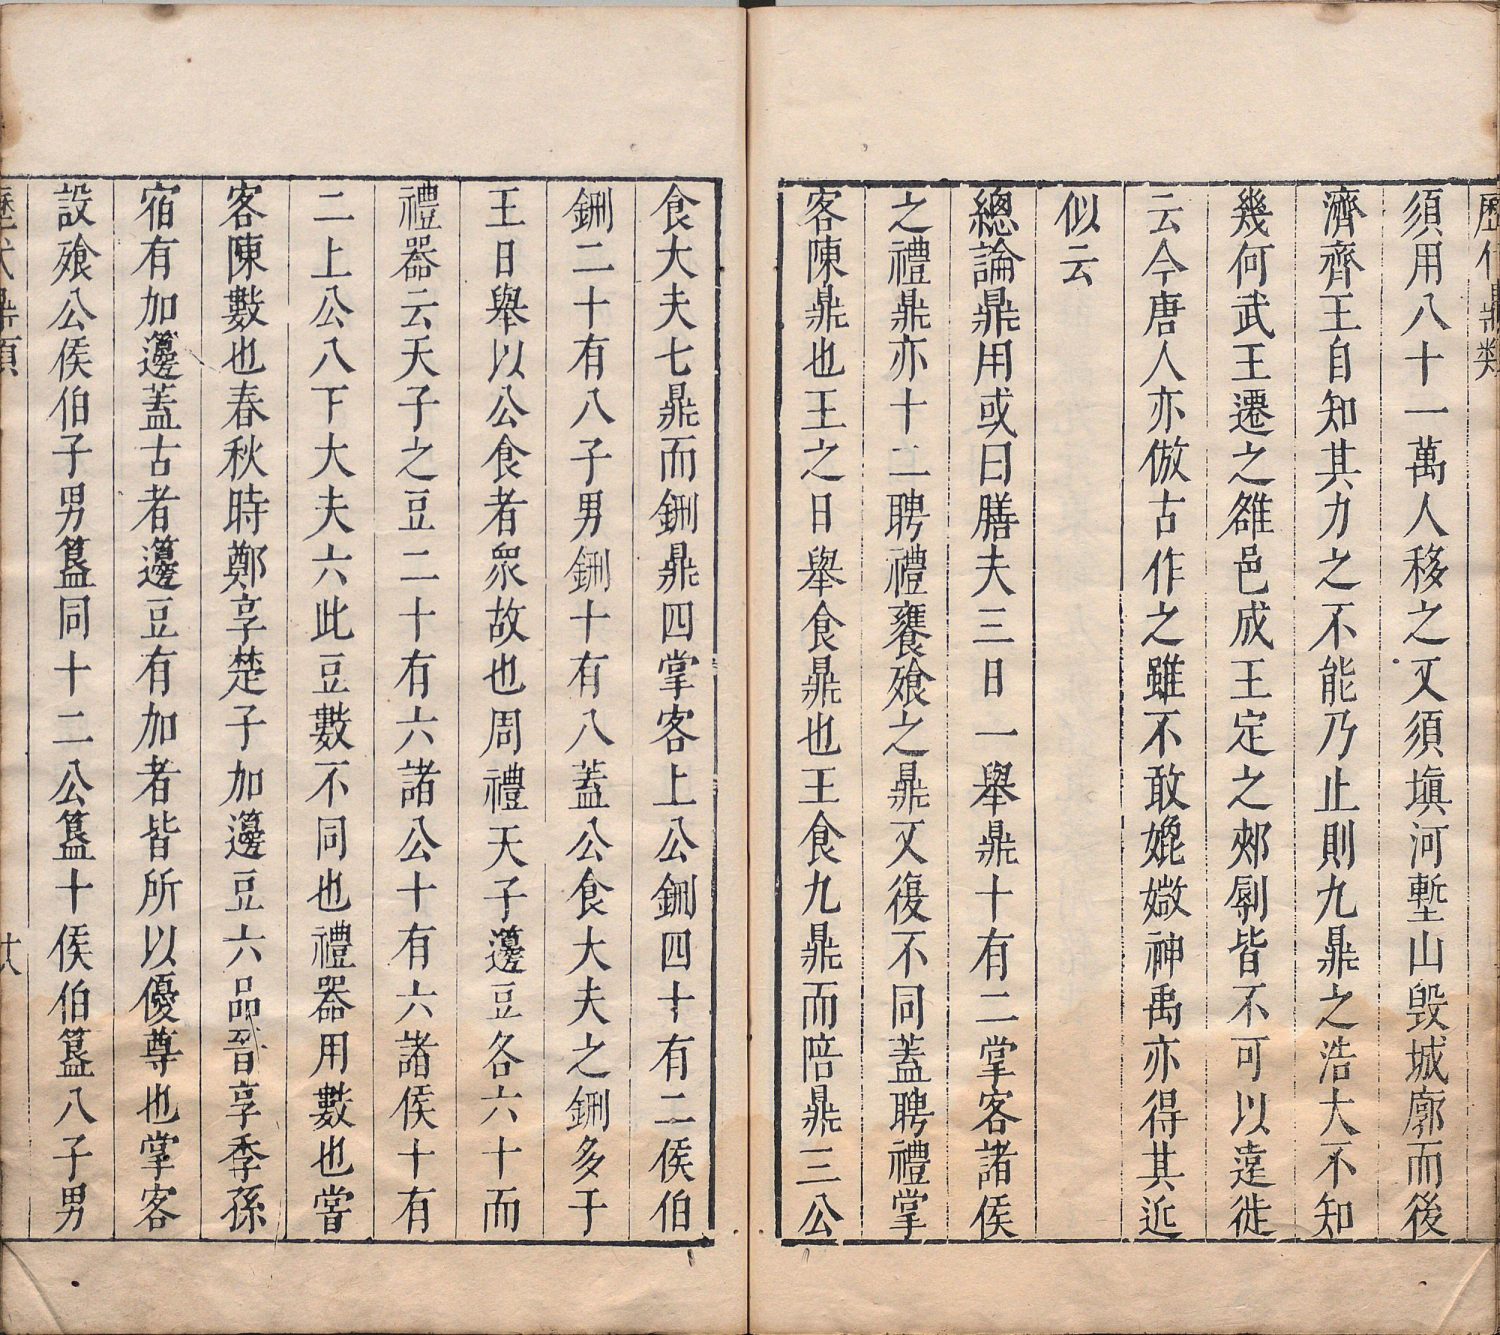 歷代鼎類
須用八十一萬人移之又須塡河塹山毁城廓而後
濟齊王自知其力之不能乃止則九鼎之浩大不知
幾何武王遷之雒邑成王定之郟鄏皆不可以遠徙
云今唐人亦倣古作之雖不敢媲媺神禹亦得其近
似云
總論鼎用或曰膳夫三日一舉鼎十有二掌客諸侯
之禮鼎亦十二聘禮饔飱之鼎又復不同蓋聘禮掌
客陳鼎也王之日舉食鼎也王食九鼎而陪鼎三公
食大夫七鼎而鉶鼎四掌客上公鉶四十有二侯伯
鉶二十有八子男鉶十有八蓋公食大夫之鉶多于
王日舉以公食者眾故也周禮天子籩豆各六十而
禮器云天子之豆二十有六諸公十有六諸侯十有
二上公八下大夫六此豆數不同也禮器用數也嘗
客陳數也春秋時鄭享楚子加籩豆六品晉享季孫
宿有加籩蓋古者籩豆有加者皆所以優尊也掌客
設飱公侯伯子男簋同十二公簋十侯伯簋八子男
歷代鼎類 廿八